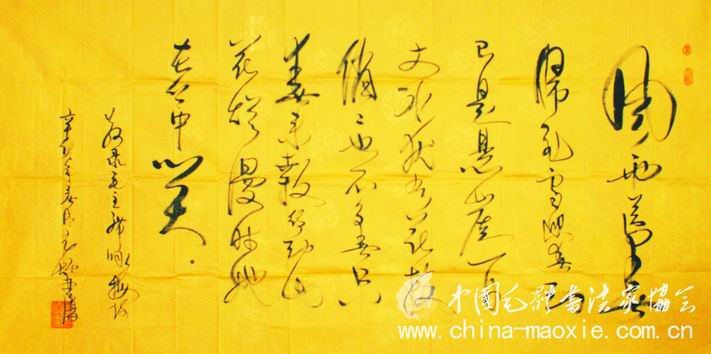 風雨送春
歸飛雪迎春到
已是悬崖百
丈冰犹有花枝
俏〻也不争春只
春来報待到山
花烂漫时她
在丛中笑
录毛主席咏梅词
辛卯年春月
中国毛體書法家協會
www.china-maoxie.com.cn